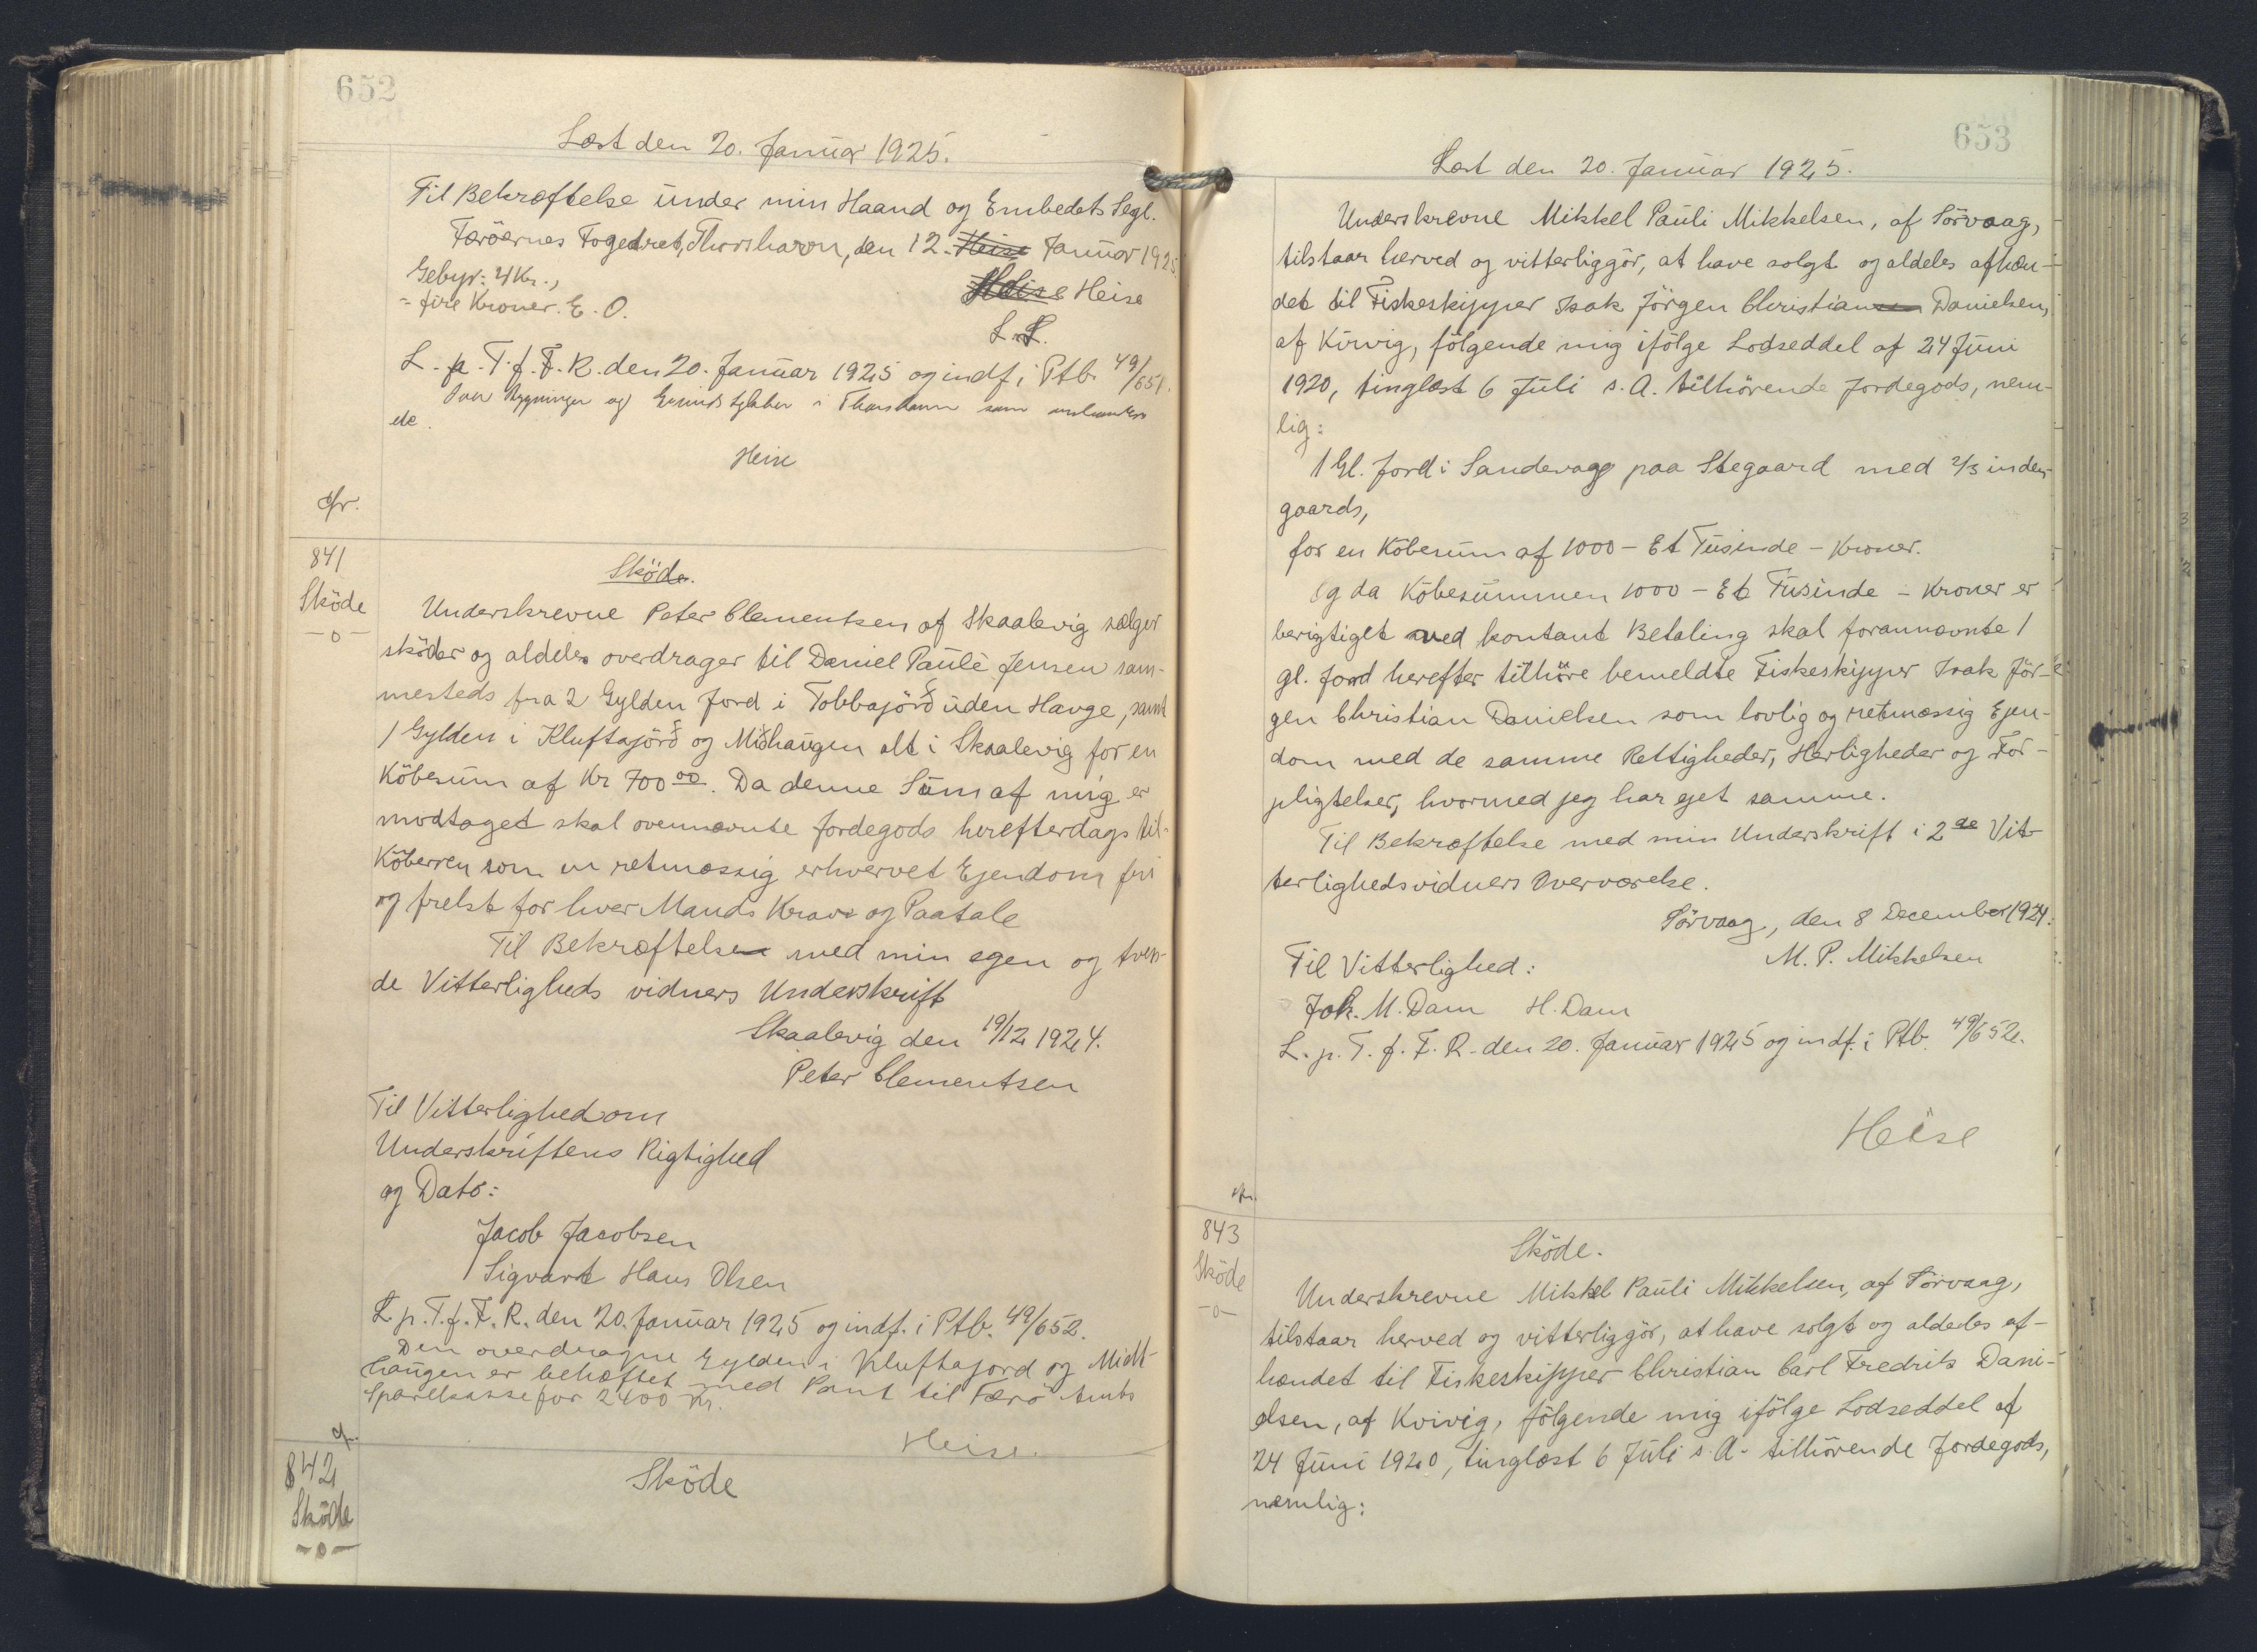 652
Læst den 20. Januar 1925.
Til Bekræftelse under min Haand og Embedets Segl.
Færöernes Fogedret, Thorshavn, den 12. Heise Januar 1925
Gebyr: 4 Kr.,
= fire Kroner. E. O.
Heise Heise
L. S.
L. p. T. f. F. R. den 20. Januar 1925 og indf. i Ptb. 49/651.
paa Bygninger og Grundstykker i Thorshavn som
Heise
cfr.
841
Sköde
-o-
Sköde.
Underskrevne Peter Clementsen af Skaalevig sælger
sköder og aldeles overdrager til Daniel Pauli Jensen sam-
mesteds fra 2 Gylden Jord i Tobbajörð uden Hauge, samt
1 Gylden i Kluftajörð og Miðhaugen alt i Skaalevig for en
Köbesum af Kr 700 00. Da denne Sum af mig er
modtaget skal ovennævnte Jordegods herefterdags til-
Köberen som en retmæssig erhvervet Ejendom fri
og frelst for hver Mands Krav og Paatale
Til Bekræftelse med min egen og tven-
de Vitterligheds vidners Underskrift
Skaalevig den 19/12 1924.
Peter Clementsen
Til Vitterlighed om
Underskriftens Rigtighed
og Dato:
Jacob Jacobsen
Sigvart Hans Olsen
L. p. T. f. F. R. den 20. Januar 1925 og indf. i Ptb. 49/652.
Den overdragne Gylden i Kluftajord og Midt-
haugen er behæftet med Pant til Færö Amts
Sparekasse for 2400 Kr.
Heise.
cfr.
842
Sköde
-o-
Sköde
653
Læst den 20. Januar 1925.
Underskrevne Mikkel Pauli Mikkelsen, af Sörvaag,
tilstaar herved og vitterliggör, at have solgt og aldeles afhæn-
det til Fiskeskipper Isak Jörgen Christiansen Danielsen,
af Kvivig, fölgende mig ifölge Lodseddel af 24 Juni
1920, tinglæst 6 Juli s. A. tilhörende Jordegods, nem-
lig:
1 Gl. Jord i Sandevaag paa Stegaard med 2/3 inden-
gaards,
for en Köbesum af 1000 - Et Tusinde - Kroner.
Og da Köbesummen 1000 - Et Tusinde - Kroner er
berigtiget med kontant Betaling skal forannævnte 1
gl. Jord herefter tilhöre bemeldte Fiskeskipper Isak Jör-
gen Christian Danielsen som lovlig og retmæssig Ejen-
dom med de samme Rettigheder, Herligheder og For-
pligtelser, hvormed jeg har ejet samme.
Til Bekræftelse med min Underskrift i 2de Vit-
terlighedsvidners Overværelse.
Sörvaag, den 8 December 1924.
M. P. Mikkelsen
Til Vitterlighed:
Joh. M. Dam H. Dam
L. p. T. f. F. R. den 20. Januar 1925 og indf. i Ptb. 49/652.
Heise
cfr.
843
Sköde
-o-
Sköde.
Underskrevne Mikkel Pauli Mikkelsen, af Sörvaag,
tilstaar herved og vitterliggör, at have solgt og aldeles af-
hændet til Fiskeskipper Christian Carl Fredrik Dani-
elsen, af Kvivig, fölgende mig ifölge Lodseddel af
24 Juni 1920, tinglæst 6 Juli s. A. tilhörende Jordegods,
næmlig: